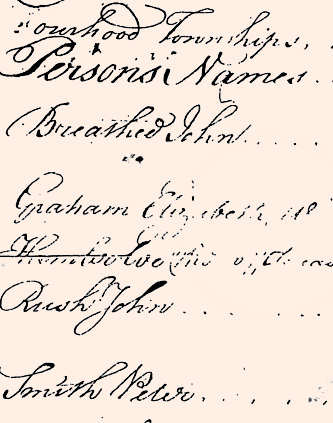 ourhood Townships,
Person's Names.
Breathed John
Graham Elizabeth
Rush John
Smith Peter